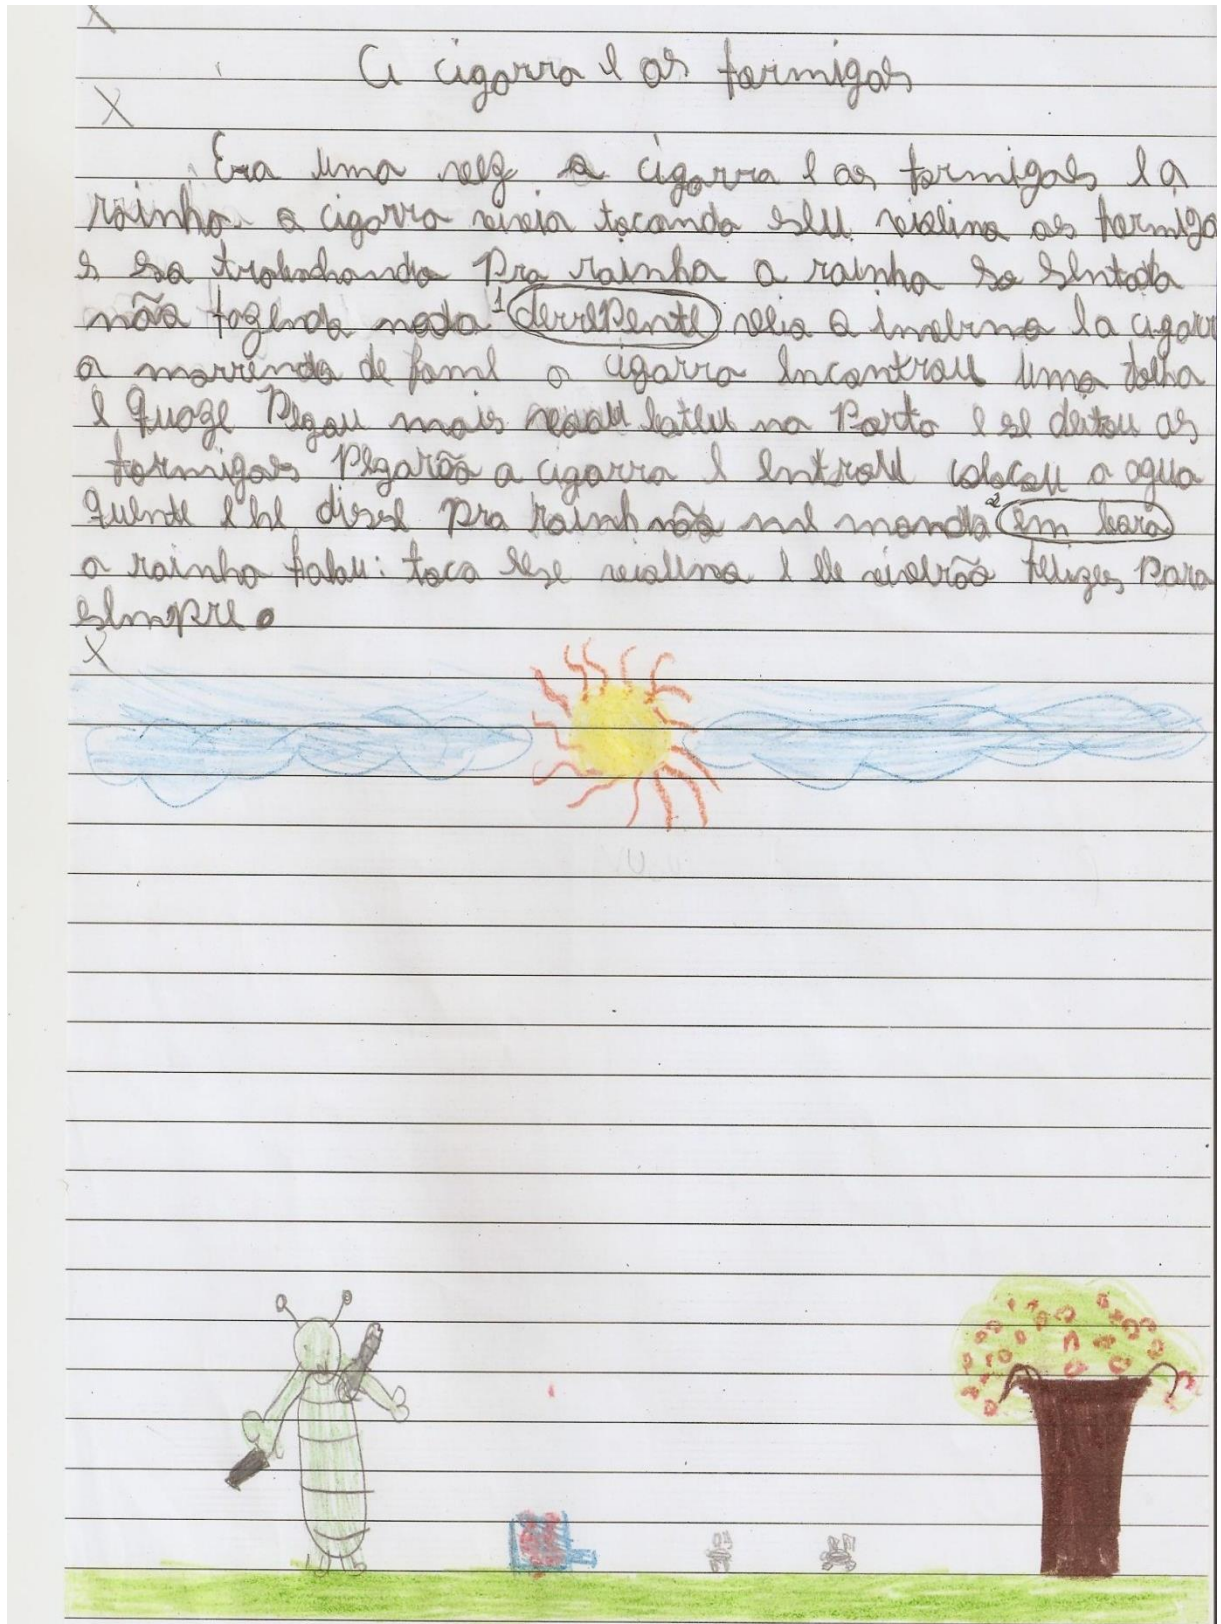 A cigarra e as formigas
Era uma vez a cigarra e as formigas e a
rainha. a cigarra vivia tocando seu violino as formiga
s so trabachando pra rainha a rainha so sentada
não fazendo nada 1 derrepente veio o inverno e a cigarr
a morrendo de fome a cigarra encontrou uma folha
e quaze pegou mais vou bateu na porta e se deitou as
formigas pegarão a cigarra e entrou colocou a agua
quente e he disse pra rainh não me manda 2 im bora
a rainha falou: toca sese violino e ele viverão felizes para
sempre.